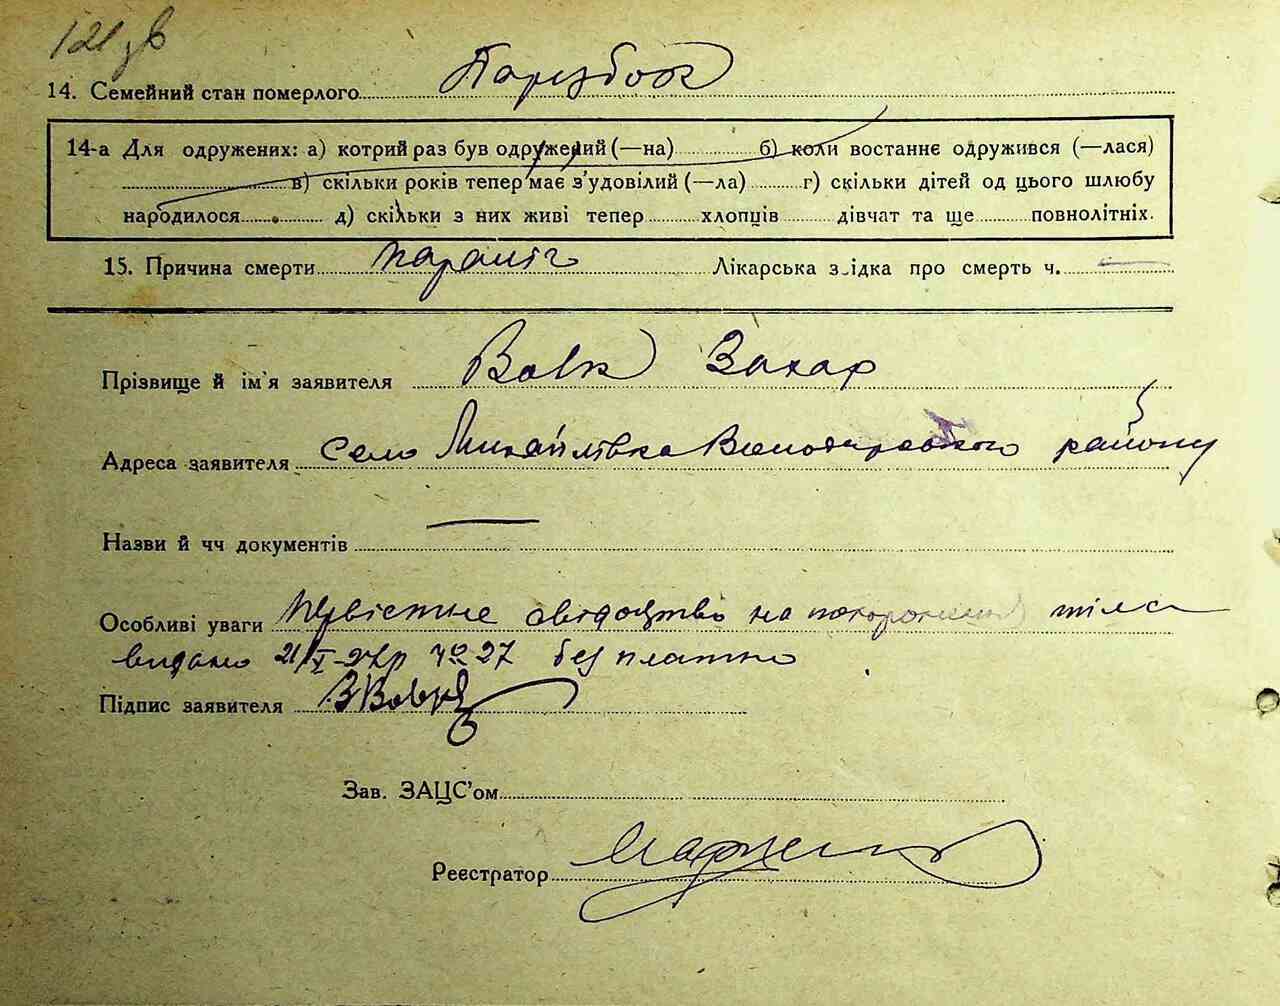 121 зв
14. Семейний стан померлого Парубок
14-а Для одружених: а) котрий раз був одружений (—на) б) коли востаннє одружився (—лася)
в) скільки років тепер має з'удовілий (—ла) г) скільки дітей од цього шлюбу
народилося д) скільки з них живі тепер хлопців дівчат та ще повнолітніх.
15. Причина смерти параліч Лікарська з ідка про смерть ч. —
Прізвище й ім'я заявителя Вовк Захар
Адреса заявителя село Михайлівка району
Назви й чч документів —
Особливі уваги свідоцтво на похоронення тіла
видано 21/V-27р № 27 безплатно
Підпис заявителя ЗВовк
Зав. ЗАЦС'ом
Реєстратор